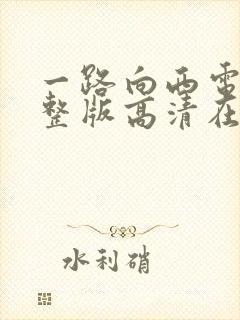 一路向西电
整版高清在
水利硝